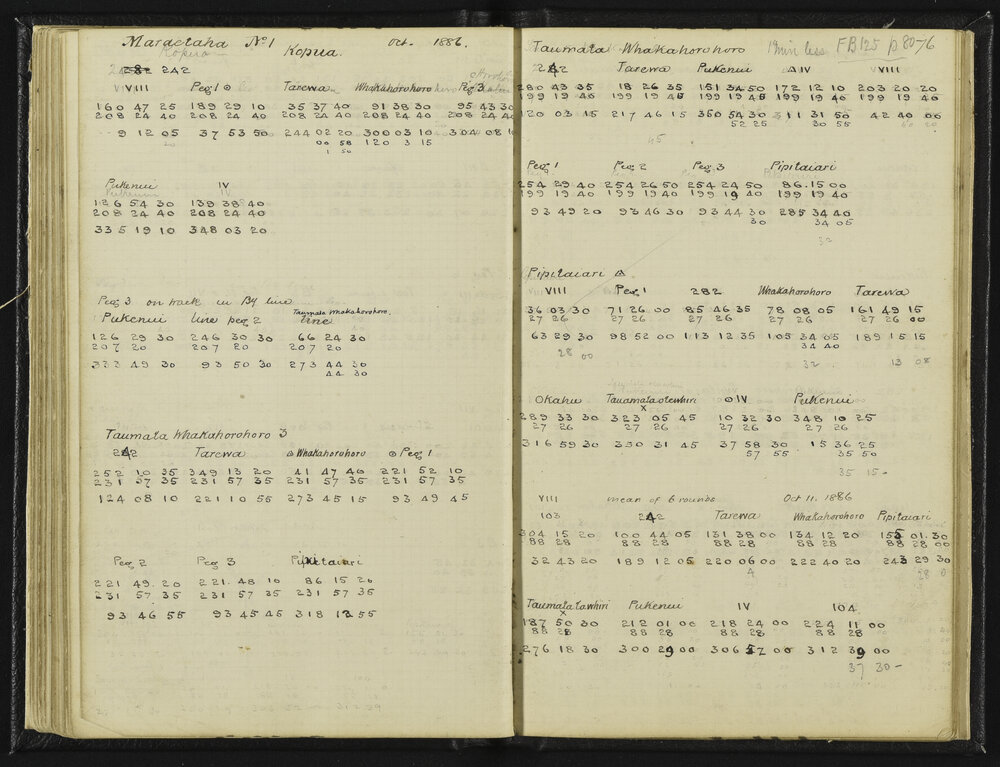 Maraetaha No 1 Kopua. Oct. 1886.
Kopua
282 242
VIII Peg 1 ⊙ Tarewa Whakahorohoro Peg 3
160 47 25 189 29 10 35 37 40 91 38 30 95 43 30
208 24 40 208 24 40 208 24 40 208 24 40 208 24 40
9 12 05 37 53 50 244 02 20 300 03 10 304 08 10
20 00 58 120 3 15
1 50
Pukenui IV
Pukenui IV
126 54 30 139 38 40
208 24 40 208 24 40
335 19 10 348 03 20
Peg 3 on track in By line
Pukenui line peg 2 Taumata Whakahorohoro line
126 29 30 246 30 30 66 24 30
207 20 207 20 207 20
333 49 30 93 50 30 273 44 30
44 30
Taumata Whakahorohoro 3
242 Tarewa △ Whakahorohoro ⊙ Peg 1
252 10 35 349 13 20 41 47 40 221 52 10
231 57 35 231 57 35 231 57 35 231 57 35
124 08 10 221 10 55 273 45 15 93 49 45
Peg 2 Peg 3 Pipitaiari
221 49 20 221 48 10 86 15 20
231 57 35 231 57 35 231 57 35
93 46 55 93 45 45 318 13 55
Taumata Whakahorohoro 1 min less FB125 p 80-76
242 Tarewa Pukenui △ IV VIII
280 43 35 18 26 35 151 34 50 172 12 10 203 20 20
199 19 40 199 19 45 199 19 40 199 19 40 199 19 40
120 03 15 217 46 15 350 54 30 311 31 50 42 40 00
52 25 30 55 40 20
45
Peg 1 Peg 2 Peg 3 Pipitaiari
254 29 40 254 26 50 254 24 50 86. 15 00
199 19 40 199 19 40 199 19 40 199 19 40
93 49 20 93 46 30 93 44 30 285 34 40
30 34 05
32
Pipitaiari △
VIII Peg 1 282 Whakahorohoro Tarewa
36 03 30 71 26 00 85 46 35 78 08 05 161 49 15
27 26 27 26 27 26 27 26 27 26 00
63 29 30 98 52 00 113 12 35 105 34 05 189 15 15
28 00 34 40
32 13 08
Okahu Tauamataotewhiri ⊙ IV Pukenui
x
289 33 30 323 05 45 10 32 30 348 10 25
27 26 27 26 27 26 27 26
316 59 30 350 31 45 37 58 30 15 36 25
57 55 35 50
35 15 -
VIII mean of 6 rounds Oct 11. 1886
103 242 Tarewa Whakahorohoro Pipitaiari
304 15 20 100 44 05 131 38 00 134 12 20 155 01. 30
88 28 88 28 88 28 88 28 88 28 00
32 43 20 189 12 05 220 06 00 222 40 20 243 29 30
4 28 0
Taumatatawhiri Pukenui IV 104
x
187 50 30 212 01 00 218 24 00 224 11 00
88 28 88 28 88 28 88 28
276 18 30 300 29 00 306 52 00 312 39 00
37 30 -